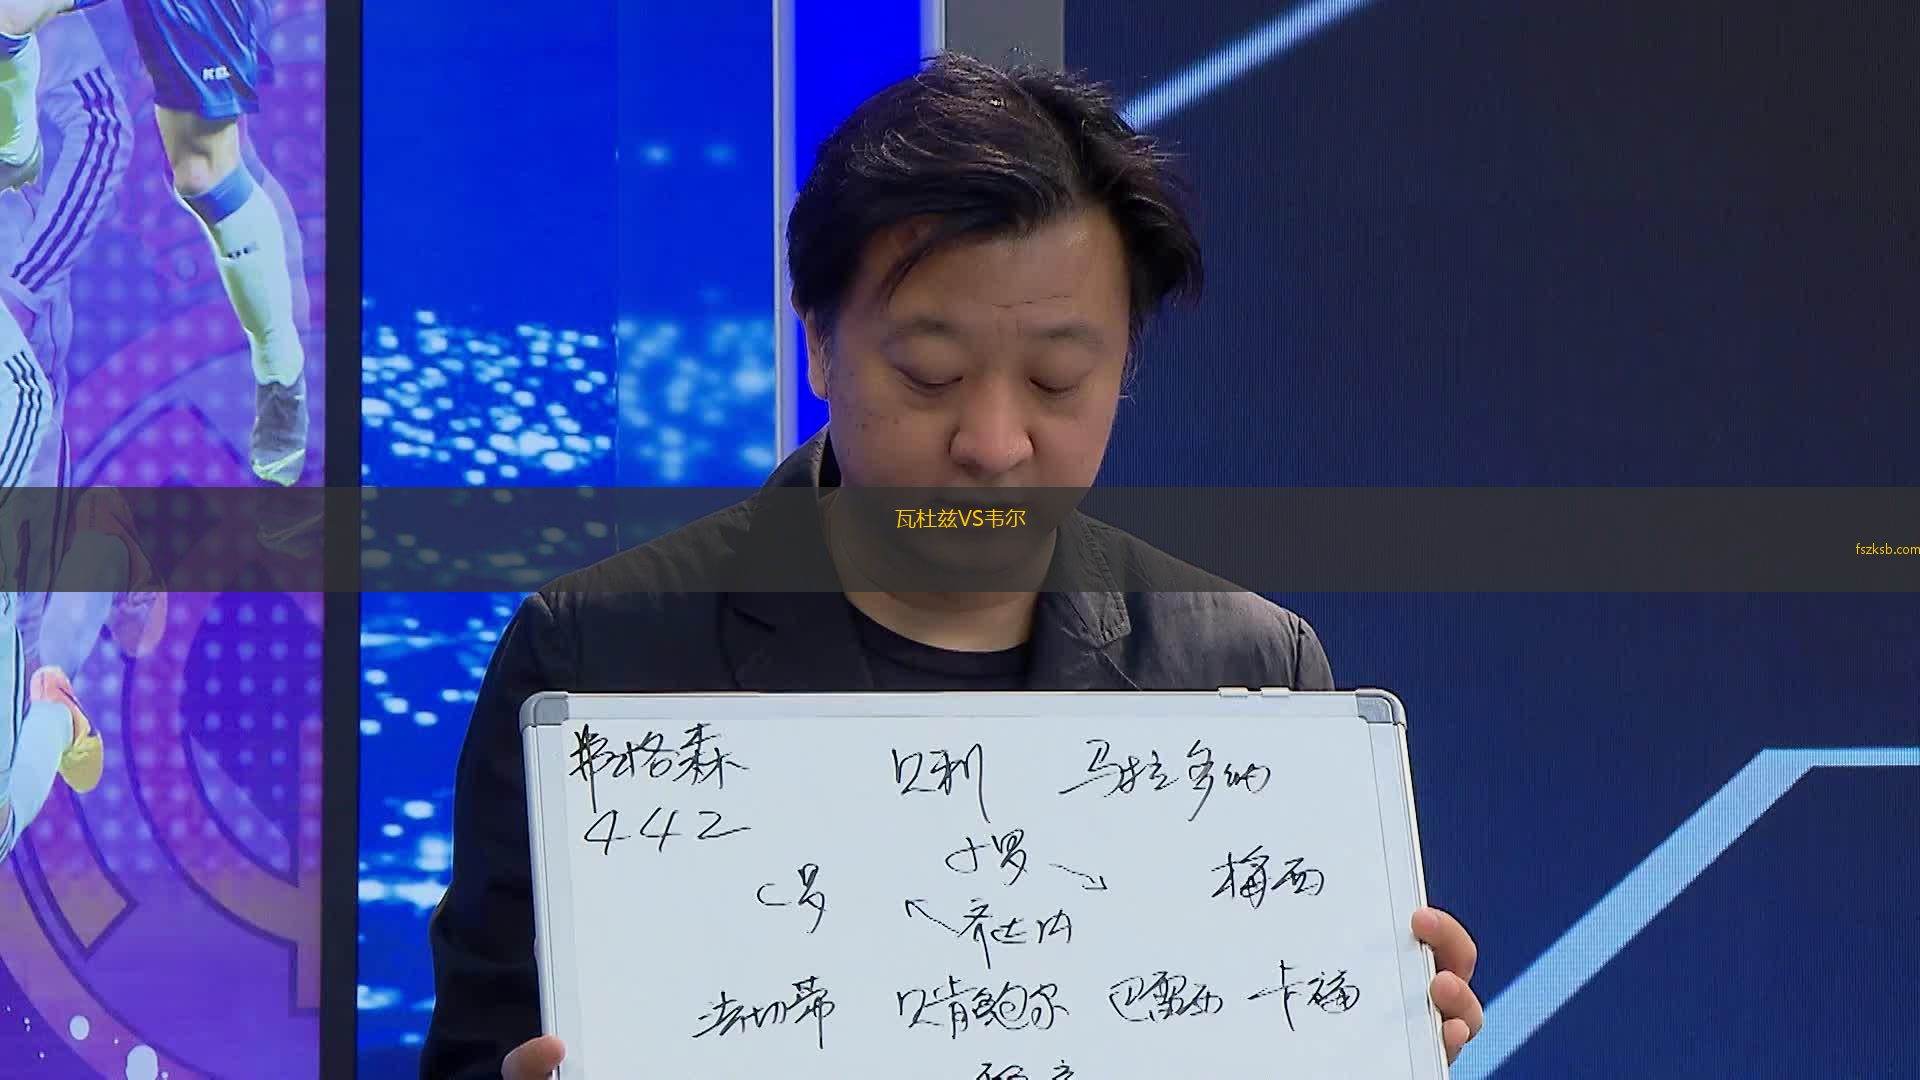 KEL
瓦杜兹VS韦尔
fszksb.com
弗格森 贝利 马拉多纳
442
小罗
C罗 梅西
齐达内
法切蒂 贝肯鲍尔 巴雷西 卡福